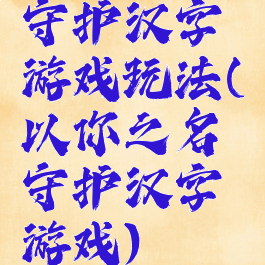 守护汉字
游戏玩法(
以你之名
守护汉字
游戏)